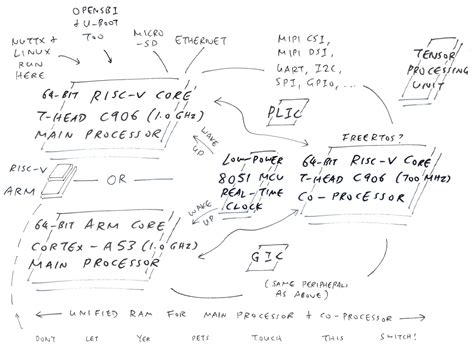 OPENSBI
& U-BOOT
TOO
NUTTX &
LINUX
RUN
HERE
MICRO
-SD
ETHERNET
MIPI CSI,
MIPI DSI,
UART, I2C,
SPI, GPIO, ...
TENSOR
PROCESSING
UNIT
64-BIT RISC-V CORE
T-HEAD C906 (1.0 GHZ)
MAIN PROCESSOR
PLIC
WAKE
UP
FREERTOS?
LOW-POWER
8051 MCU
REAL-TIME
CLOCK
64-BIT RISC-V CORE
T-HEAD C906 (700 MHZ)
CO-PROCESSOR
RISC-V
ARM
OR
WAKE
UP
64-BIT ARM CORE
CORTEX-A53 (1.0 GHZ)
MAIN PROCESSOR
GIC
(SAME PERIPHERALS
AS ABOVE)
UNIFIED RAM FOR MAIN PROCESSOR & CO-PROCESSOR
DON'T LET YER PETS TOUCH THIS SWITCH!